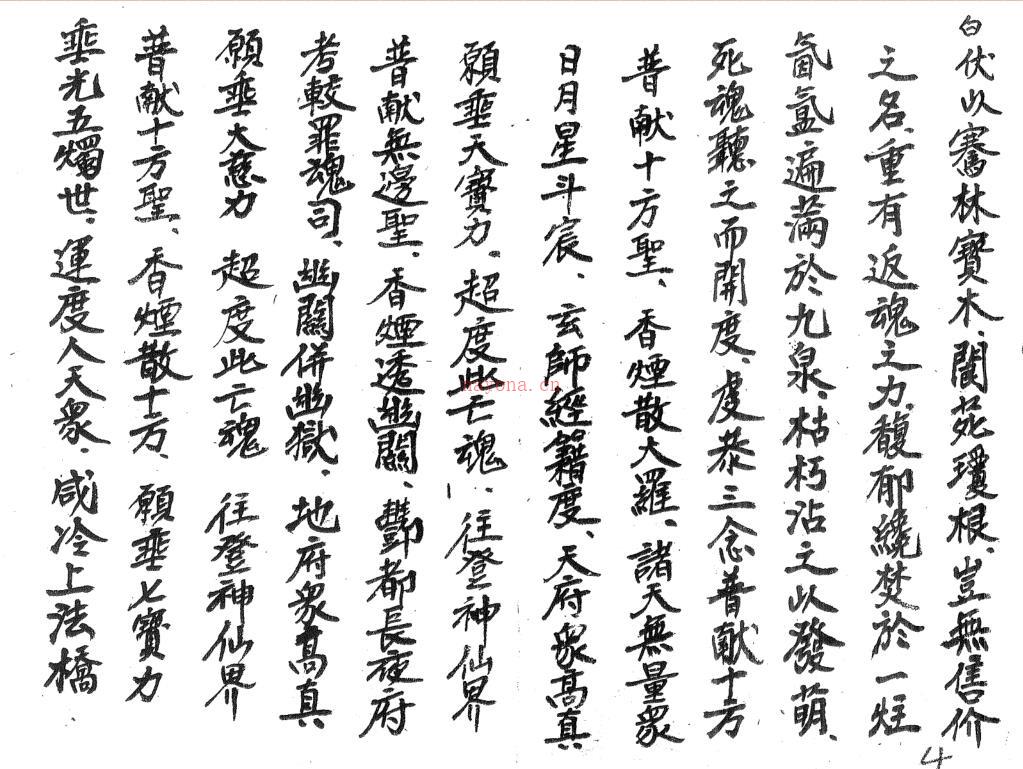 白伏以騫林寶木、閬苑瓊根、豈無售价
之名、重有返魂之力、馥郁繞焚於一炷
氤氳遍滿於九泉、枯朽沾之以發萌、
死魂聽之而開度、虔恭三念普献十方
普献十方聖、香煙散大羅、諸天無量衆
日月星斗宸、玄師經籍度、天府衆高真
願垂天寶力、超度此亡魂、往登神仙界
普献無邊聖、香煙透幽關、酆都長夜府
考較罪魂司、幽關併幽獄、地府衆高真
願垂大慈力 超度此亡魂 往登神仙界
普献十方聖、香煙散十方、願垂七寶力
垂光五燭世、運度人天衆、咸冷上法橋
4
hayona.cn